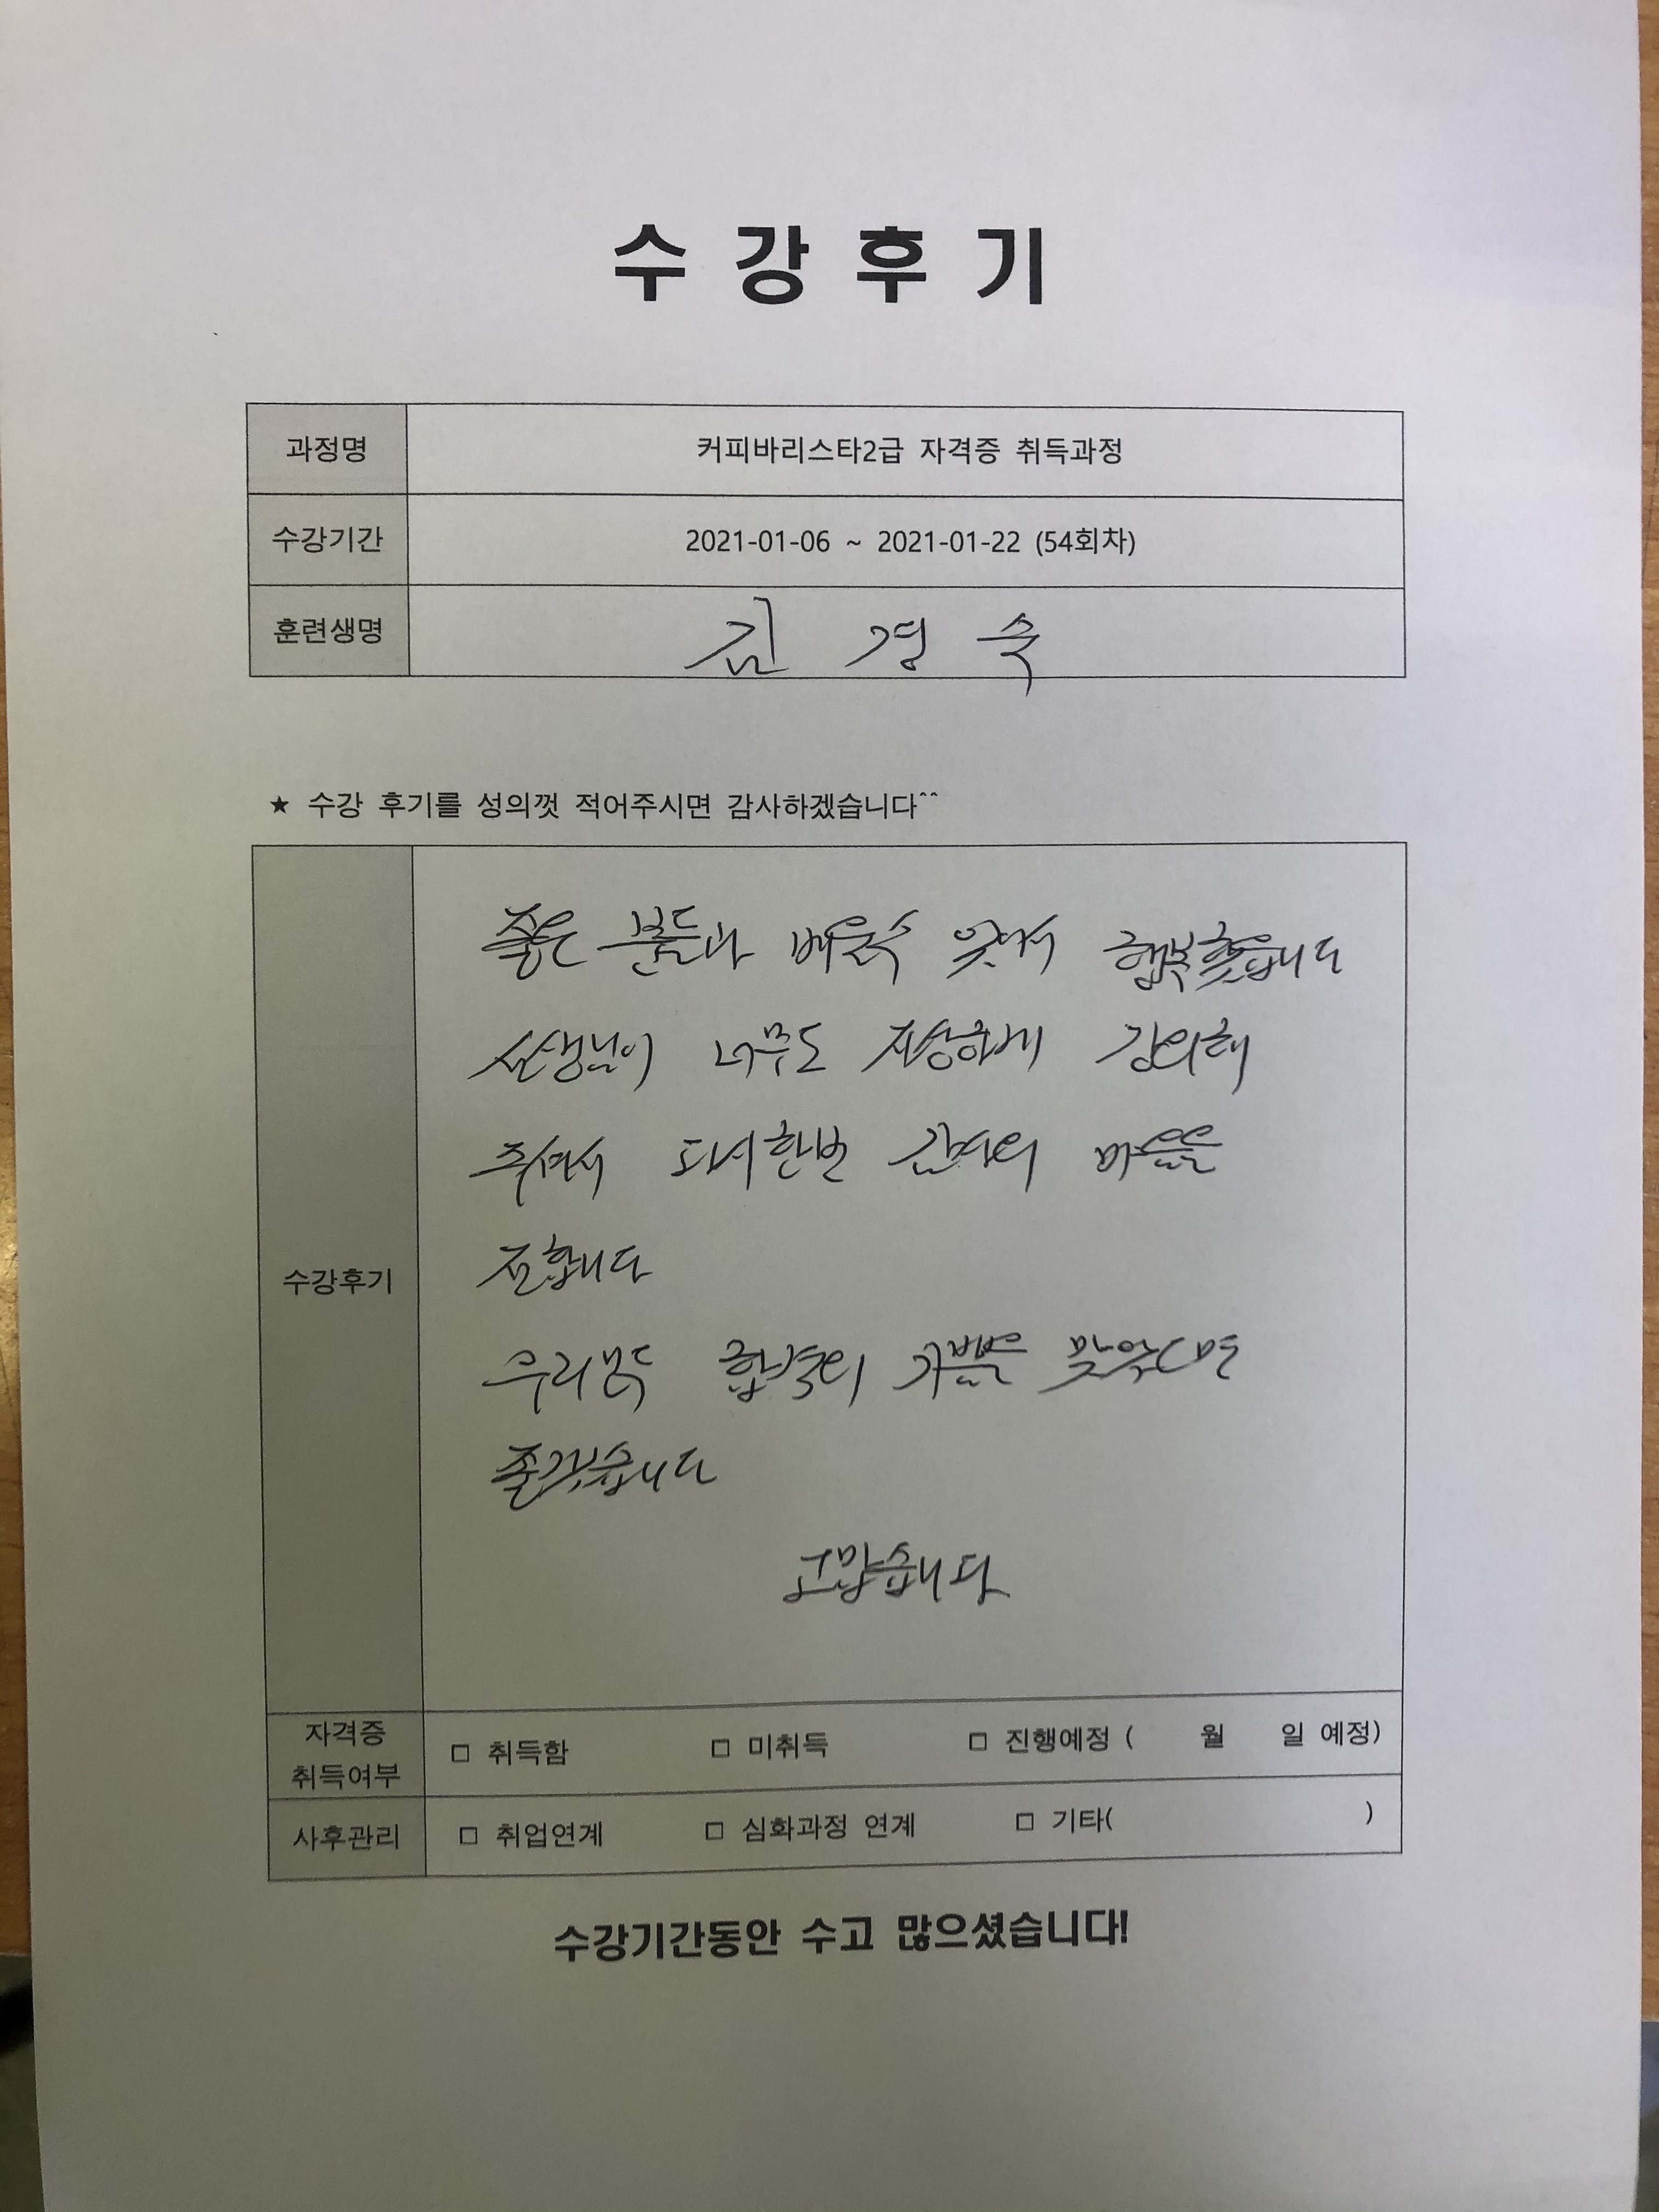 수 강 후 기
과정명 커피바리스타2급 자격증 취득과정
수강기간 2021-01-06 ~ 2021-01-22 (54회차)
훈련생명 김 경 숙
★ 수강 후기를 성의껏 적어주시면 감사하겠습니다^^
수강후기
좋은 분들과 배울수 있어서 행복했습니다
선생님이 너무도 자상하게 강의해
주셔서 다시한번 감사의 마음을
전합니다
우리모두 합격의 기쁨을 맛았으면
좋겠습니다
고맙습니다
자격증 취득여부 □ 취득함 □ 미취득 □ 진행예정 ( 월 일 예정)
사후관리 □ 취업연계 □ 심화과정 연계 □ 기타( )
수강기간동안 수고 많으셨습니다!